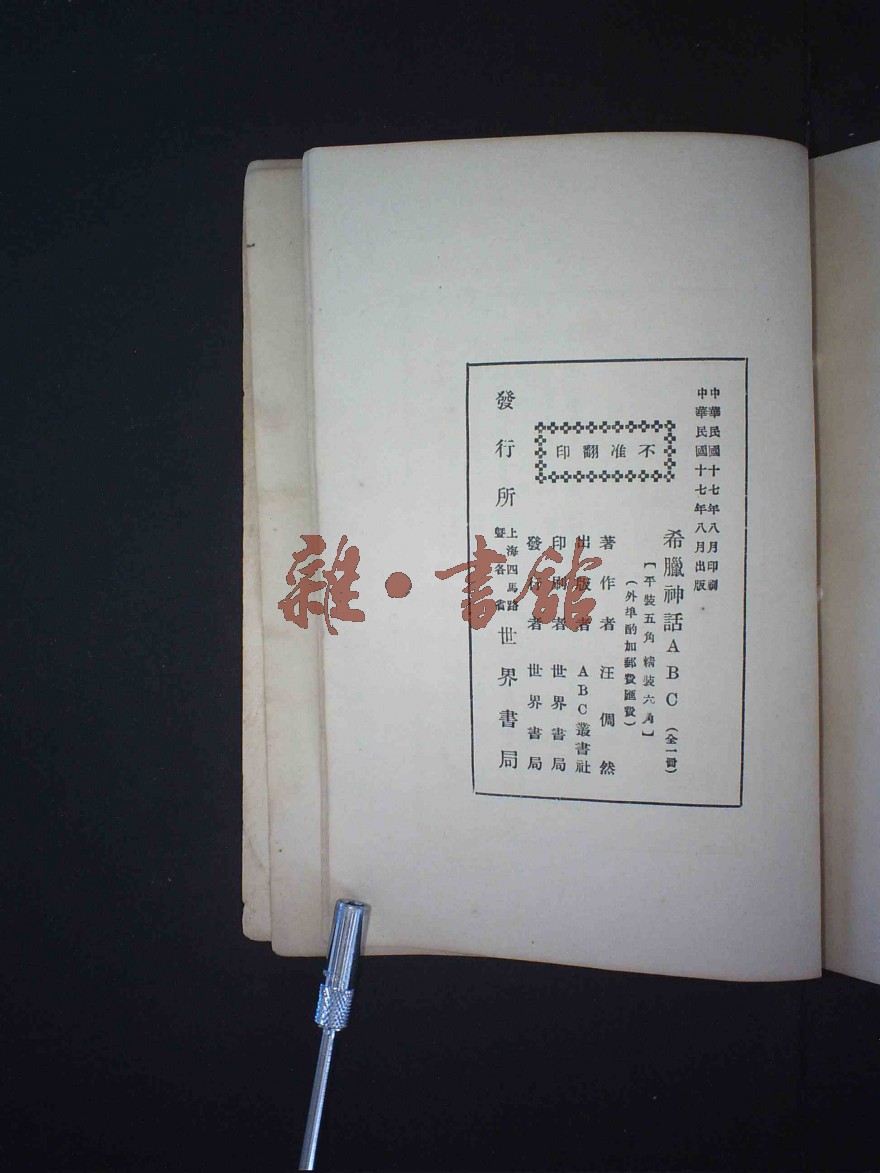 中華民國十七年八月印刷
中華民國十七年八月出版
希臘神話ABC（全一冊）
【平裝五角 精裝六角】
（外埠酌加郵費匯費）
不准翻印
著作者 汪倜然
出版者 ABC叢書社
印刷者 世界書局
發行者 世界書局
發行所 上海四馬路暨各省 世界書局
雜·書館